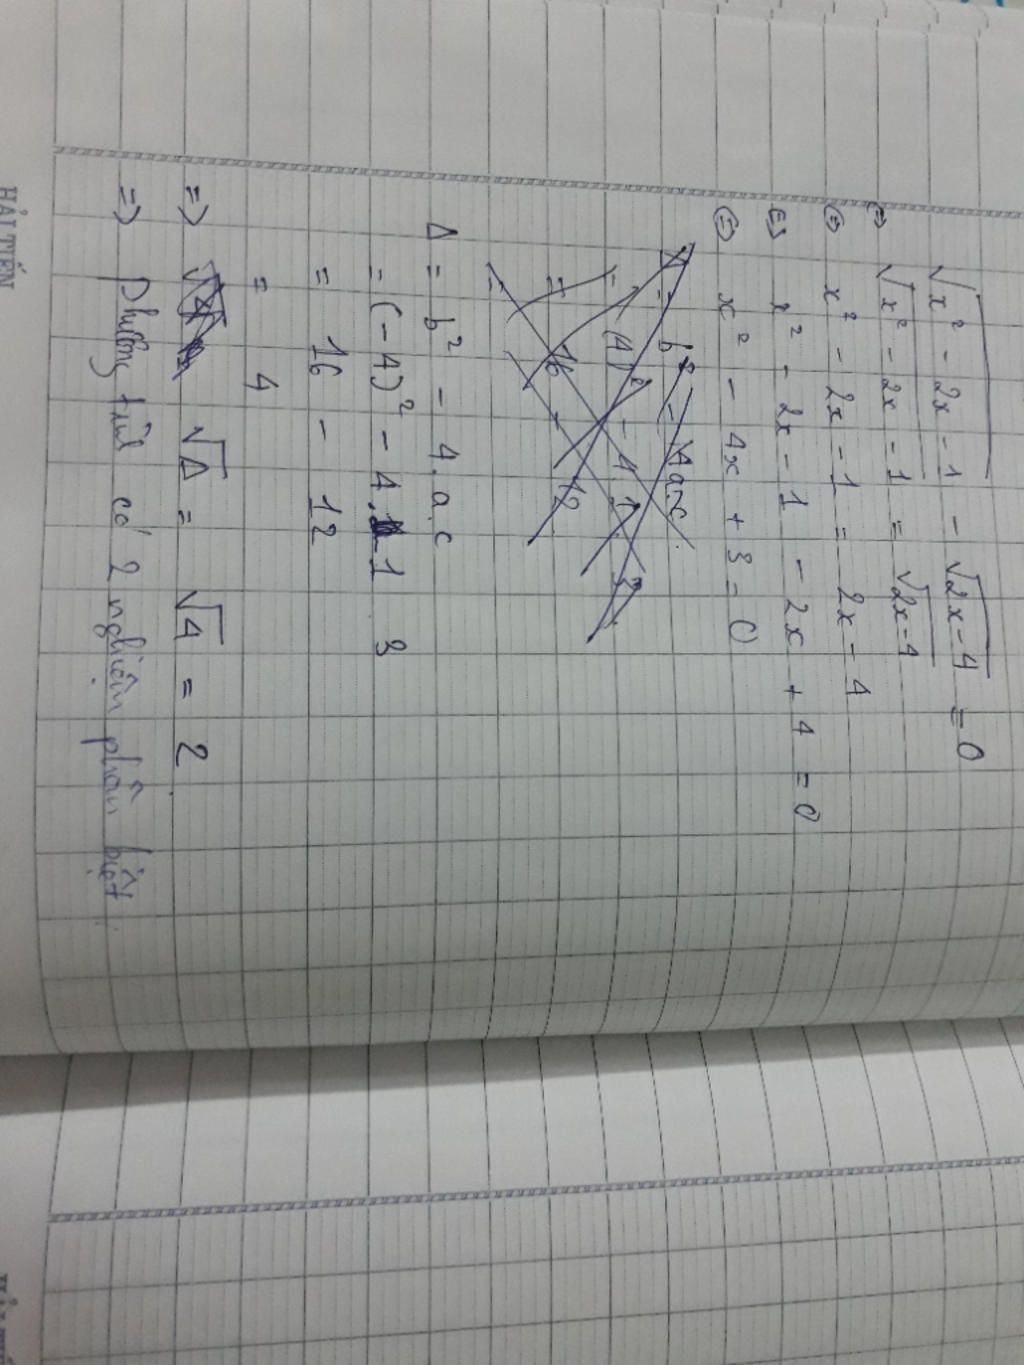 √x² - 2x - 1 - √2x - 4 = 0
(=) √x² - 2x - 1 = √2x - 4
(=) x² - 2x - 1 = 2x - 4
(=) x² - 2x - 1 - 2x + 4 = 0
(=) x² - 4x + 3 = 0
Δ = b² - 4.a.c
= (-4)² - 4.1 3
= 16 - 12
= 4
=> √Δ = √4 = 2
=> Phương trình có 2 nghiệm phân biệt
HẢI TIẾN